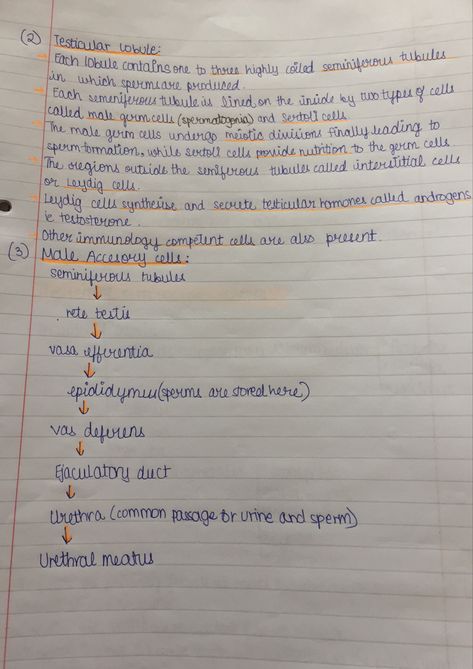 (2) Testicular lobule:
→ Each lobule contains one to three highly coiled seminiferous tubules
in which sperms are produced.
→ Each semeniferous tubule is lined on the inside by two types of cells
called male germ cells (spermatogonia) and sertoli cells.
→ The male germ cells undergo meiotic divisions finally leading to
sperm formation, while sertoli cells provide nutrition to the germ cells
→ The regions outside the semiferous tubules called interstitial cells
or Leydig cells.
→ Leydig cells synthesise and secrete testicular hormones called androgens
ie testosterone.
→ Other immunology competent cells are also present.
(3) Male Accesory cells:
seminiferous tubules
↓
rete testis
↓
vasa efferentia
↓
epididymus (sperms are stored here)
↓
vas deferens
↓
Ejaculatory duct
↓
Urethra (common passage for urine and sperm)
↓
Urethral meatus